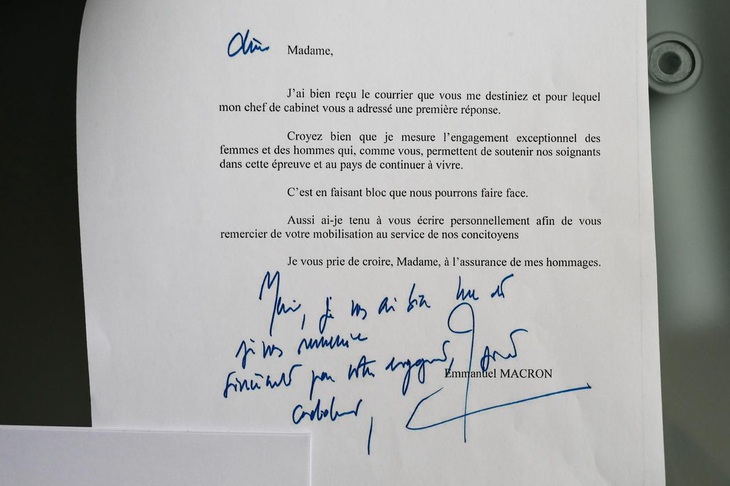 Chère Madame,
J'ai bien reçu le courrier que vous me destiniez et pour lequel
mon chef de cabinet vous a adressé une première réponse.
Croyez bien que je mesure l'engagement exceptionnel des
femmes et des hommes qui, comme vous, permettent de soutenir nos soignants
dans cette épreuve et au pays de continuer à vivre.
C'est en faisant bloc que nous pourrons faire face.
Aussi ai-je tenu à vous écrire personnellement afin de vous
remercier de votre mobilisation au service de nos concitoyens
Je vous prie de croire, Madame, à l'assurance de mes hommages.
je vous ai bien lue et
je vous remercie
sincèrement pour votre engagement,
Emmanuel MACRON